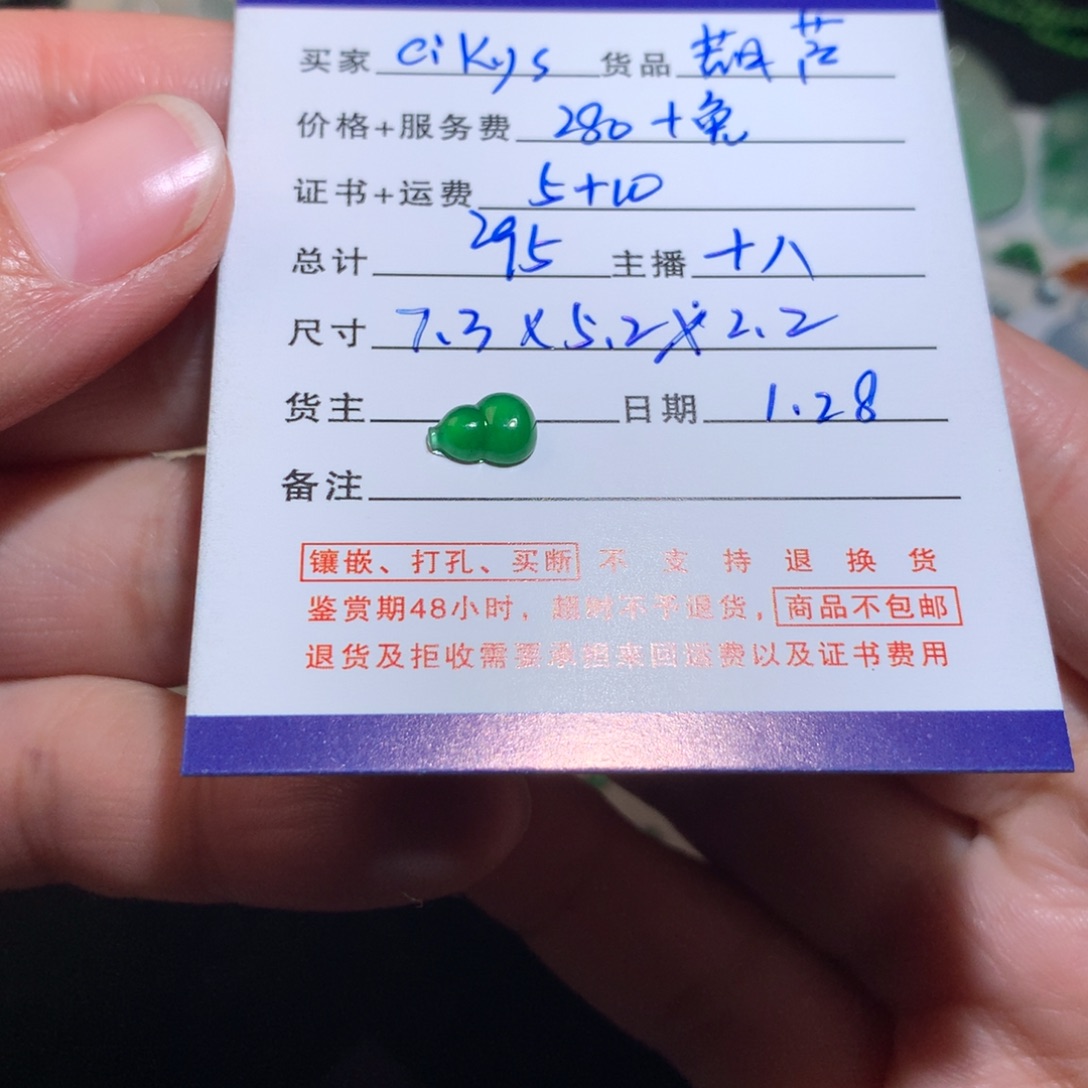 买家 CiKys 货品 葫芦
价格+服务费 280+免
证书+运费 5+10
总计 295 主播 十八
尺寸 7.3×5.2×2.2
货主 日期 1.28
备注
镶嵌、打孔、买断 不支持退换货
鉴赏期48小时，超时不予退货，商品不包邮
退货及拒收需要承担来回运费以及证书费用